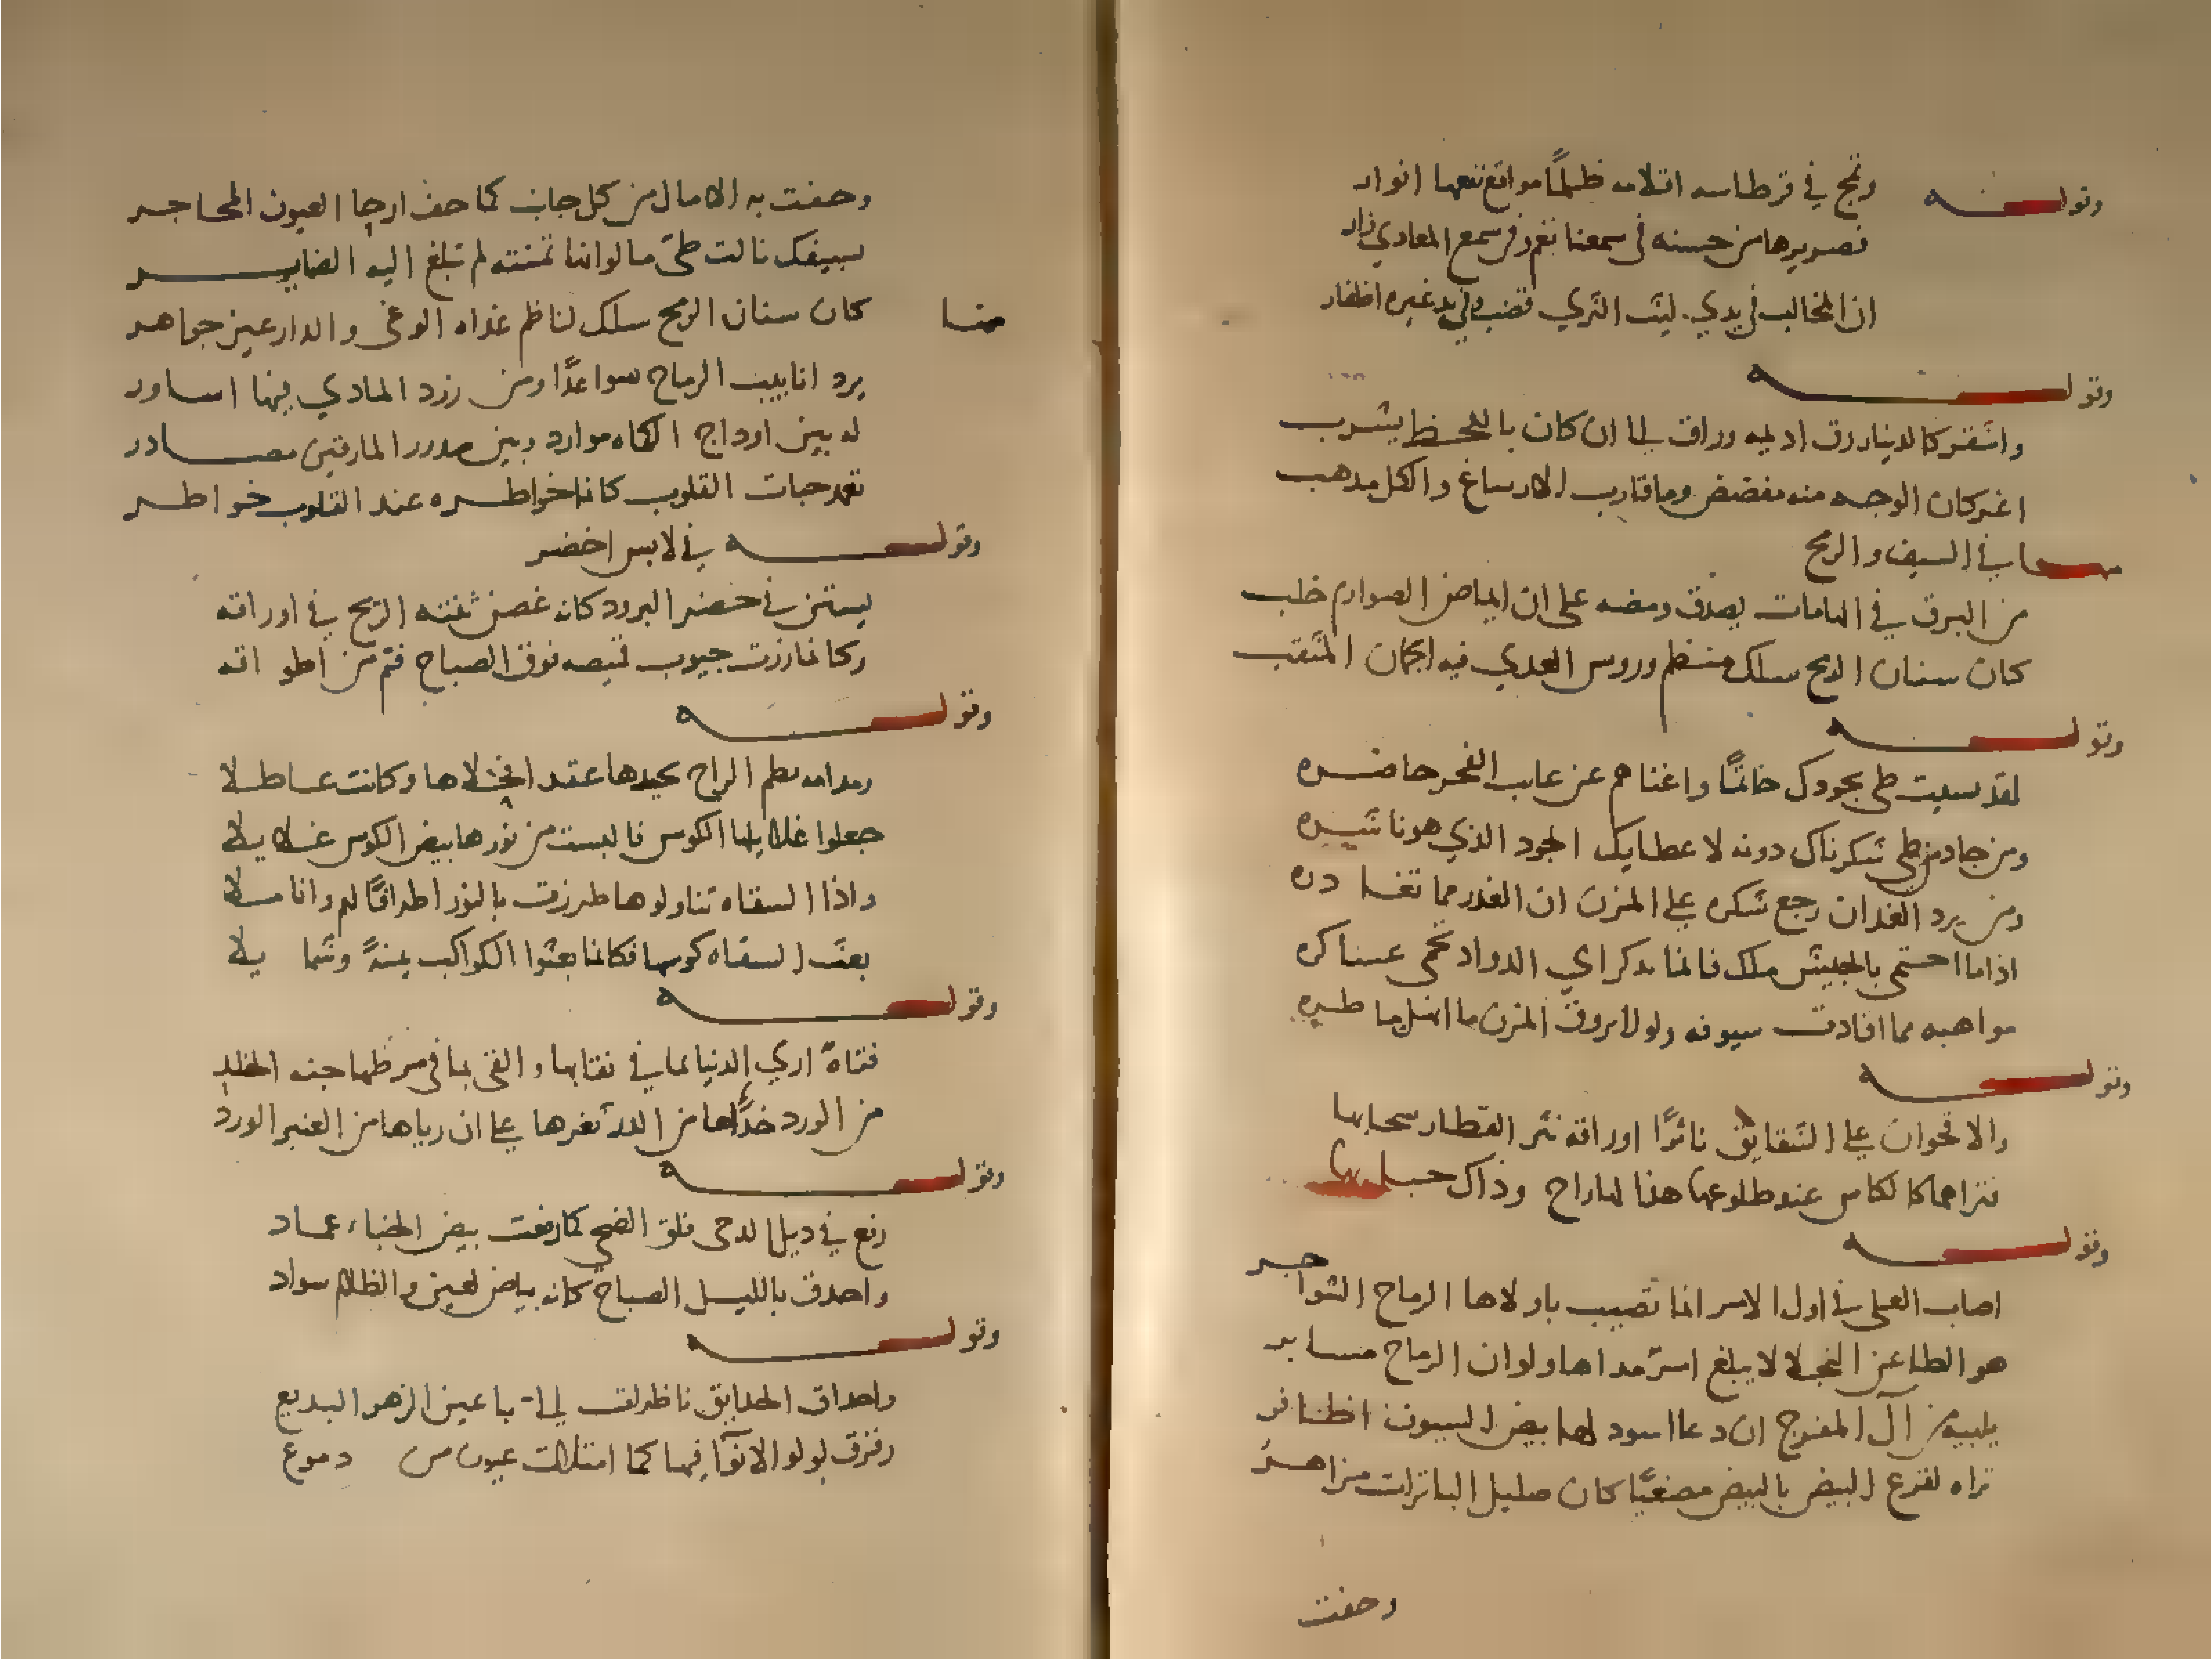 وقوله وتمج في قرطاسه اقلامه ظلمًا مواقع نقعها انوار
فصريرها من حسنه في سمعنا نغم وفي سمع المعادي زار
ان المخالب في يدي ليث الثري قضب وفي يد غيره اظفار
وقوله
واشقر كالدينار رق اديمه وراق لنا ان كان باللحظ يشرب
اغر كان الوجه منه مفضض وما قارب الارساغ والكل مذهب
منها في السيف والرمح
من البرق في الهامات يصدق ومضه على ان ايماض الصوارم خلب
كان سنان الرمح سلك منظم وروس العدي فيه الجمان المثقب
وقوله
لقد نسيت طي بجودك حاتمًا واغناهم عن غايب الفخر حاضره
ومن جاد من طي شكرناك دونه لا عطايك الجود الذي هو ناشره
ومن يرد الغدران رجع شكره على المزن ان الغدر مما تغادره
اذا ما احتمي بالجيش ملك فانما بذكراي الدواد تحمي عساكره
مواهبه مما افادت سيوفه ولولا بروق المزن ما انهل ماطره
وقوله
والاقحوان على الشقايق ناثرًا اوراقه نثر القطار سحابها
فتراهما كالكاس عند طلوعها هذا لها راح وذاك حبابها
وقوله
اصاب العلى في اول الامر انما تصيب باولاها الرماح الشواجر
هو الطاعن النجلا لا يبلغ اسر مداها ولو ان الرماح مسابر
يلبيه من آل المفرج ان دعا اسود لها بيض السيوف اظافر
تراه لقرع البيض بالبيض مصغيًا كان صليل الباترات مزاهر
وحفت
وحفت به الامال من كل جانب كما حف ارجا العيون المحاجر
بسيفك نالت طي ما لو اننا تمنته لم تبلغ اليه الضماير
منها كان سنان الرمح سلك لناظم غداه الوغى والدارعين جواهر
يرد انابيب الرماح سواعدًا ومن زرد المادي فيها اساور
له بين اوداج الكماه موارد وبين صدور المارقين مصادر
تعد حبات القلوب كانها خواطره عند القلوب خواطر
وقوله في لابس اخضر
يستن في خضر البرود كانه غصن ثنته الريح في اوراقه
وكانما رزت جيوب قميصه فوق الصباح فتم من اطواقه
وقوله
ومدامه نظم المزاج بجيدها عقد افخلاها وكانت عاطلا
جعلوا غلايلها الكوس فالبست من نورها بيض الكوس غلايلا
واذا السقاه تناولوها طرزت بالنور اطرافًا لهم وانا ملا
بعث السقاه كوسها فكانما بعثوا الكواكب يمنةً وشمايلا
وقوله
فتاة اري الدنيا بما في نقابها والقي بما في مرطها جنه الخلد
من الورد خداها من الدر ثغرها على ان رياها من العنبر الورد
وقوله
رفع في ذيل الدجى فلق الضحى كما رفعت بيض الخباء عماد
واحدق بالليل الصباح كانه بياض لعين والظلام سواد
وقوله
واحداق الحدايق ناظرات الينا باعين الزهر البديع
رقرق لولو الانوآ فيها كما امتلات عيون من دموع